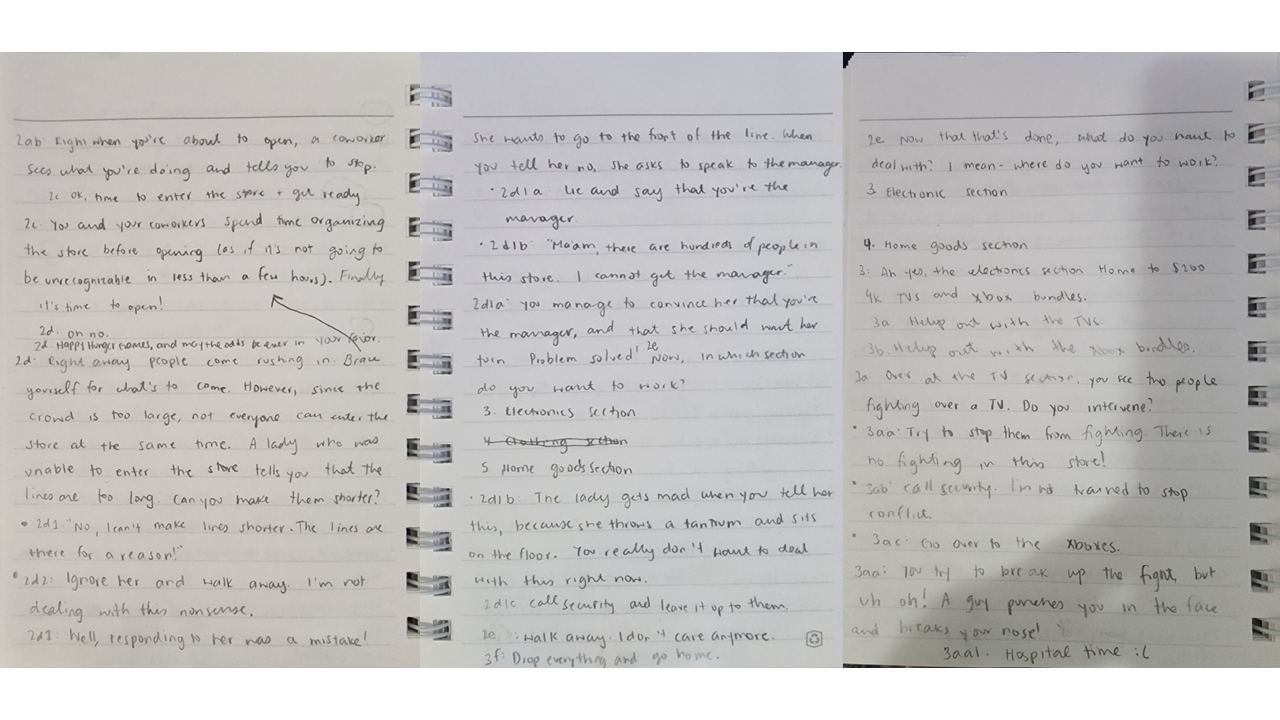 2ab: Right when you're about to open, a coworker
sees what you're doing and tells you to stop.
2c ok, time to enter the store + get ready
2c: You and your coworkers spend time organizing
the store before opening (as if it's not going to
be unrecognizable in less than a few hours). Finally
it's time to open!
2d: oh no.
2d Happy Hunger Games, and may the odds be ever in your favor.
2d: Right away people come rushing in. Brace
yourself for what's to come. However, since the
crowd is too large, not everyone can enter the
store at the same time. A lady who was
unable to enter the store tells you that the
lines are too long. Can you make them shorter?
• 2d1: "No, I can't make lines shorter. The lines are
there for a reason!"
• 2d2: Ignore her and walk away. I'm not
dealing with this nonsense.
2d1: Well, responding to her was a mistake!
She wants to go to the front of the line. When
you tell her no, she asks to speak to the manager.
• 2d1a: Lie and say that you're the
manager.
• 2d1b: "Ma'am, there are hundreds of people in
this store. I cannot get the manager."
2d1a: you manage to convince her that you're
the manager, and that she should wait her
turn Problem solved! 2e Now, in which section
do you want to work?
3. Electronics section
4 Clothing section
5 Home goods section
• 2d1b: The lady gets mad when you tell her
this, because she throws a tantrum and sits
on the floor. You really don't want to deal
with this right now.
2d1c call security and leave it up to them.
2e : walk away. I don't care anymore.
3f: Drop everything and go home.
2e Now that that's done, what do you want to
deal with? I mean - where do you want to work?
3 Electronic section
4. Home goods section
3: Ah yes, the electronics section Home to $200
4K TVs and Xbox bundles.
3a. Help out with the TVs.
3b. Help out with the Xbox bundles.
3a Over at the TV section, you see two people
fighting over a TV. Do you intervene?
• 3aa: Try to stop them from fighting. There is
no fighting in this store!
• 3ab: call security. I'm not trained to stop
conflict.
• 3ac: Go over to the Xboxes.
3aa: You try to break up the fight, but
uh oh! A guy punches you in the face
and breaks your nose!
3aa1. Hospital time :(